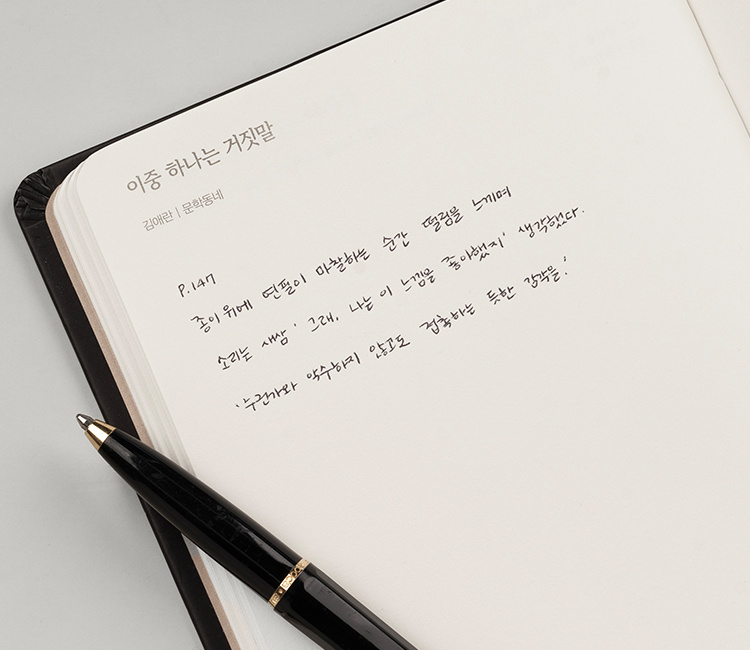 이중 하나는 거짓말
김애란 | 문학동네
P.147
종이 위에 연필이 마찰하는 순간 떨림을 느끼며
소리는 새삼 '그래, 나는 이 느낌을 좋아했지' 생각했다.
'누군가와 악수하지 않고도 접촉하는 듯한 감각을.'